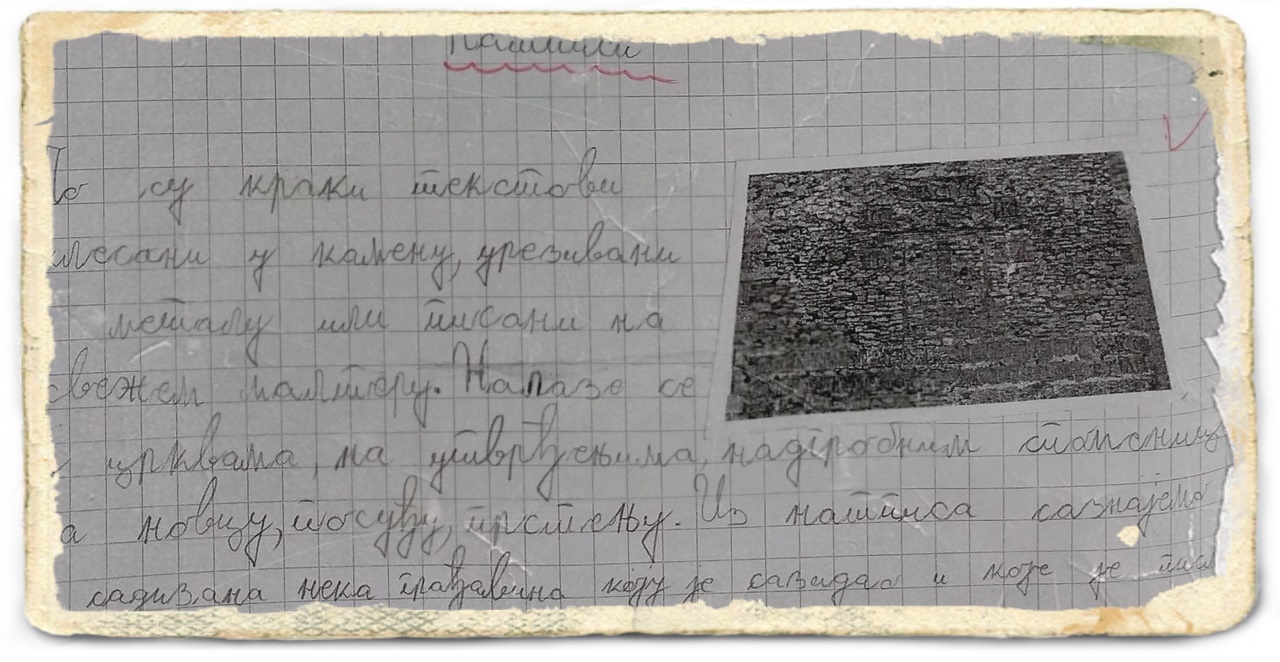 Натписи
То су краки текстови
клесани у камену, урезивани
металу или писани на
свежем малтеру. Налазе се
црквама, на утврђењима, надгробним
новцу, посуђу, прстењу. Из натписа сазнајемо
садизана нека грађевина коју је сазидао и које је